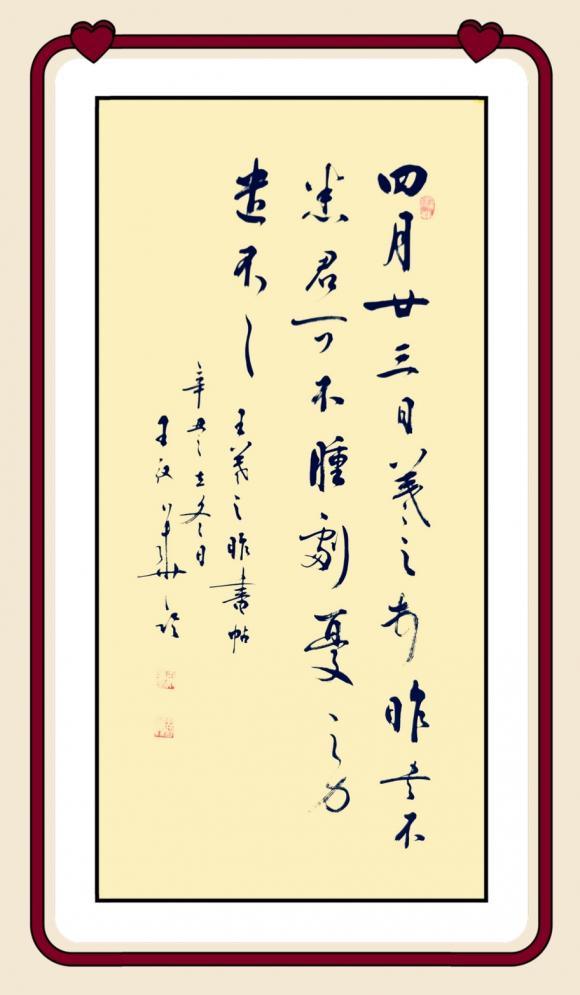 四月廿三日羲之 昨書不
悉君可不腫劇憂之力
遣不
王羲之昨書帖
辛丑立冬日
王汉華临